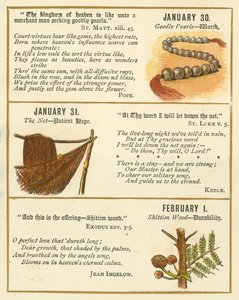 "The kingdom of heaven is like unto a
merchant man seeking goodly pearls."
St. Matt. xiii. 45.
Court-virtues bear like gems, the highest rate,
Born where heaven's influence scarce can
penetrate;
In life's low vale the soil the virtue the,
They please as beauties, here as wonders
strike
Tho' the same sun, with all-diffusive rays,
Blush in the rose, and in the diamond blaze,
We prize the effort of the stronger power,
And justly set the gem above the flower.
Pope.
JANUARY 30.
Goodly Pearls—Worth.
JANUARY 31.
The Net—Patient Hope.
"At Thy word I will let down the net."
St. Luke v. 5.
The live-long night we've toil'd in vain,
But at Thy gracious word
I will let down the net again:—
"Do thou, Thy will, O Lord!"
* * * * *
There is a stay—and we are strong;
Our Master is at hand,
To cheer our solitary song,
And guide us to the strand.
Keble.
"And this is the offering—Shittim wood."
Exodus xxv. 3-5.
O perfect love that 'dureth long;
Dear growth, that shaded by the palms,
And breathed on by the angels song,
Blooms on in heaven's eternal calms.
Jean Ingelow.
FEBRUARY 1.
Shittim Wood—Durability.